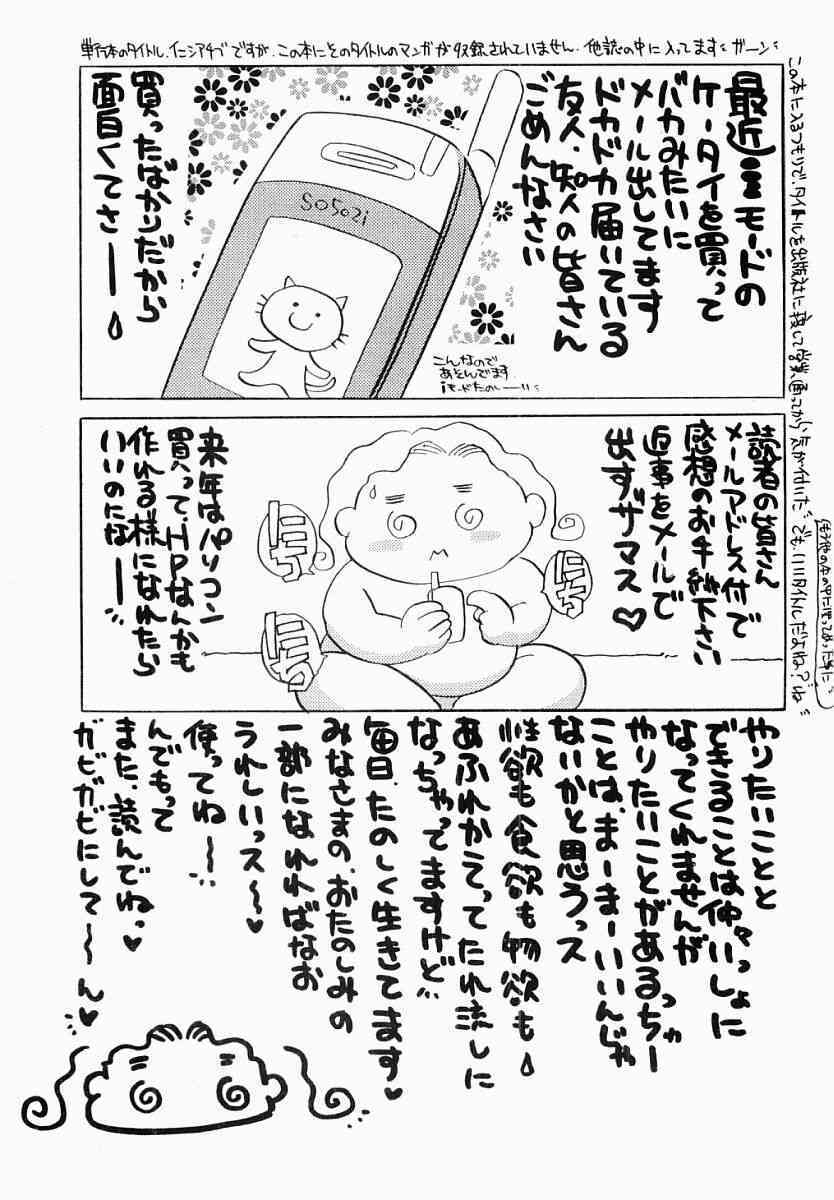 単行本のタイトル、イニシアチブですが、この本にそのタイトルのマンガが収録されていません。他誌の中に入ってます ガーン
この本に入るつもりで、タイトルを出版社に
でも、いいタイトルだよね?
最近iモードの
ケータイを買って
バカみたいに
メール出してます
ドカドカ届いている
友人、知人の皆さん
ごめんなさい
買ったばかりだから
面白くてさーー
SO502i
こんなので
あそんでます
iモードたのしーー!!
読者の皆さん
メールアドレス付で
感想のお手紙下さい
返事をメールで
出すザマス♡
にちにち
にちにち
にちにち
来年はパソコン
買って、HPなんかも
作れる様になれたら
いいのになーー
やりたいことと
できることは仲々いっしょに
なってくれませんが
やりたいことがあるっちゃー
ことは、まーまーいいんじゃ
ないかと思うっス
性欲も食欲も物欲も
あふれかえってたれ流しに
なっちゃってますけど
毎日、たのしく生きてます♥
みなさまの、おたのしみの
一部になれればなお
うれしいっス〜♥
使ってね〜
んでもって
また、読んでねっ♥
ガビガビにして〜ん♥